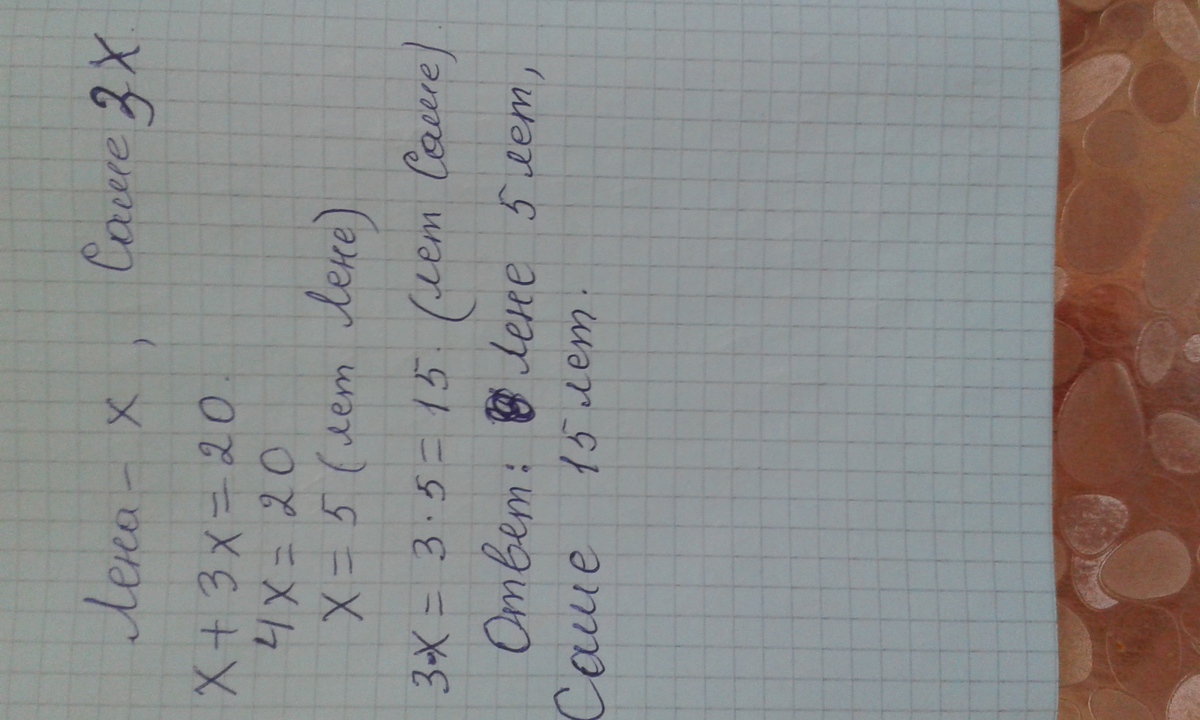 Лена - x, Саше 3x.
x + 3x = 20.
4x = 20
x = 5 (лет Лене)
3·x = 3 · 5 = 15. (лет Саше).
Ответ: Лене 5 лет,
Саше 15 лет.